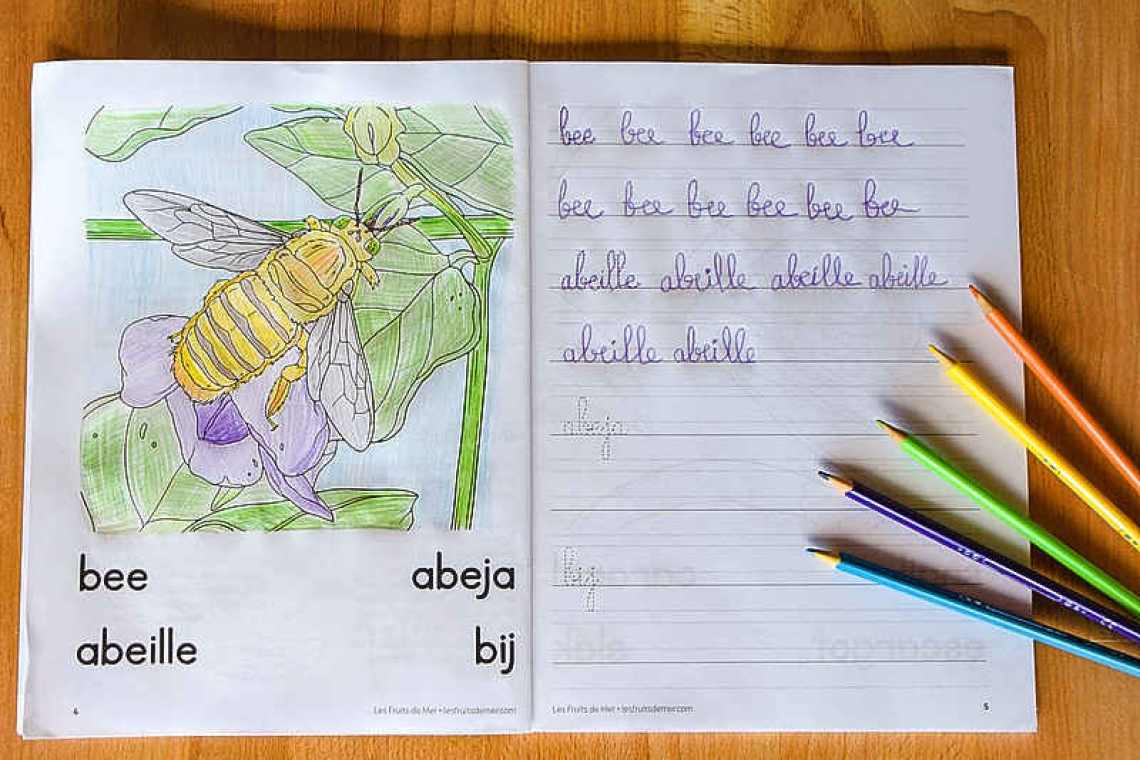 bee abeja
abeille bij
4 Les Fruits de Mer • lesfruitsdemer.com
bee bee bee bee bee bee
bee bee bee bee bee bee
abeille abeille abeille abeille
abeille abeille
abeja
bij
Les Fruits de Mer • lesfruitsdemer.com 5